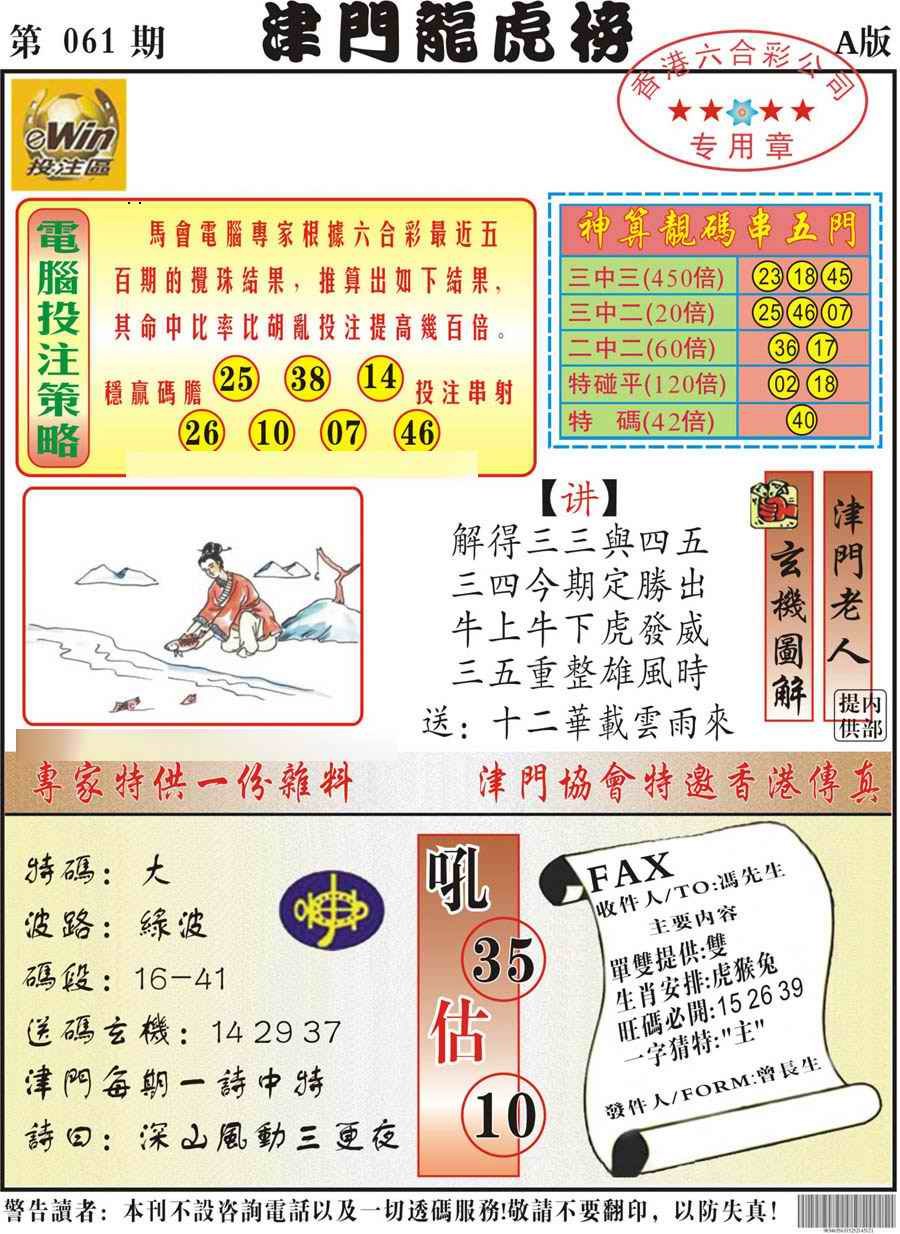 第 061 期
津門龍虎榜
A版
香港六合彩公司
专用章
eWin
投注區
電腦投注策略
馬會電腦專家根據六合彩最近五
百期的攪珠結果，推算出如下結果，
其命中比率比胡亂投注提高幾百倍。
穩贏碼膽 25 38 14 投注串射
26 10 07 46
神算靚碼串五門
三中三(450倍) 23 18 45
三中二(20倍) 25 46 07
二中二(60倍) 36 17
特碰平(120倍) 02 18
特 碼(42倍) 40
【讲】
解得三三與四五
三四今期定勝出
牛上牛下虎發威
三五重整雄風時
送：十二華載雲雨來
玄機圖解
津門老人
内部提供
專家特供一份雜料
津門協會特邀香港傳真
特碼：大
波路：綠波
碼段：16-41
送碼玄機：14 29 37
津門每期一詩中特
詩曰：深山風動三更夜
吼
35
估
10
FAX
收件人/TO:馮先生
主要内容
單雙提供:雙
生肖安排:虎猴兔
旺碼必開:15 26 39
一字猜特:"主"
發件人/FORM:曾長生
警告讀者：本刊不設咨詢電話以及一切透碼服務!敬請不要翻印，以防失真！